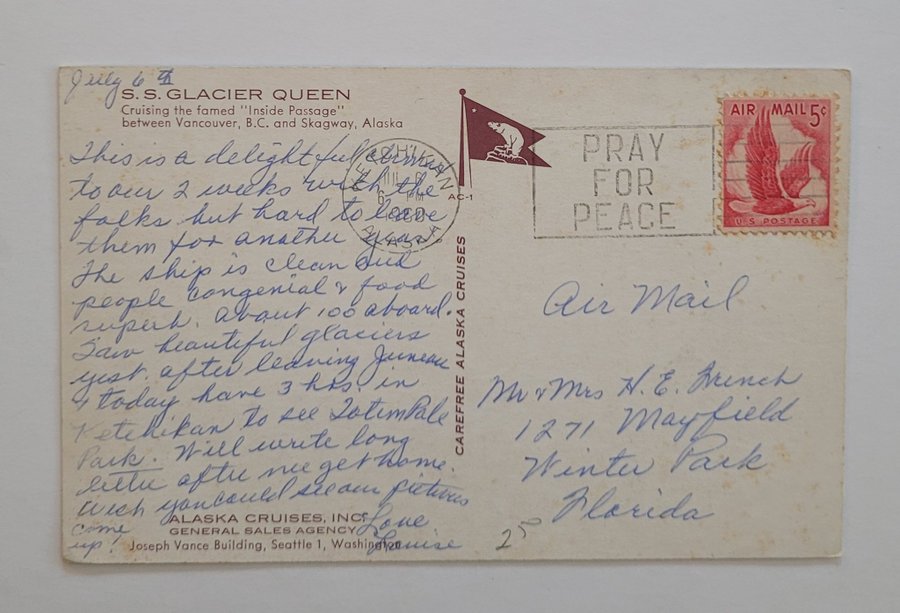 July 6th
S.S. GLACIER QUEEN
Cruising the famed "Inside Passage"
between Vancouver, B.C. and Skagway, Alaska
This is a delightful climax
to our 2 weeks with the
folks but hard to leave
them for another year.
The ship is clean and
people congenial & food
superb. About 100 aboard.
Saw beautiful glaciers
yest. after leaving Juneau
& today have 3 hrs. in
Ketchikan to see Totim Pole
Park. Will write long
letter after we get home.
Wish you could see our pictures
come
up!
Love
Louise
ALASKA CRUISES, INC.
GENERAL SALES AGENCY
Joseph Vance Building, Seattle 1, Washington
AC-1
CAREFREE ALASKA CRUISES
KETCHIKAN
JUL 6
6 PM
ALASKA
PRAY
FOR
PEACE
AIR MAIL 5¢
U.S. POSTAGE
Air Mail
Mr & Mrs H. E. French
1271 Mayfield
Winter Park
Florida
2.50